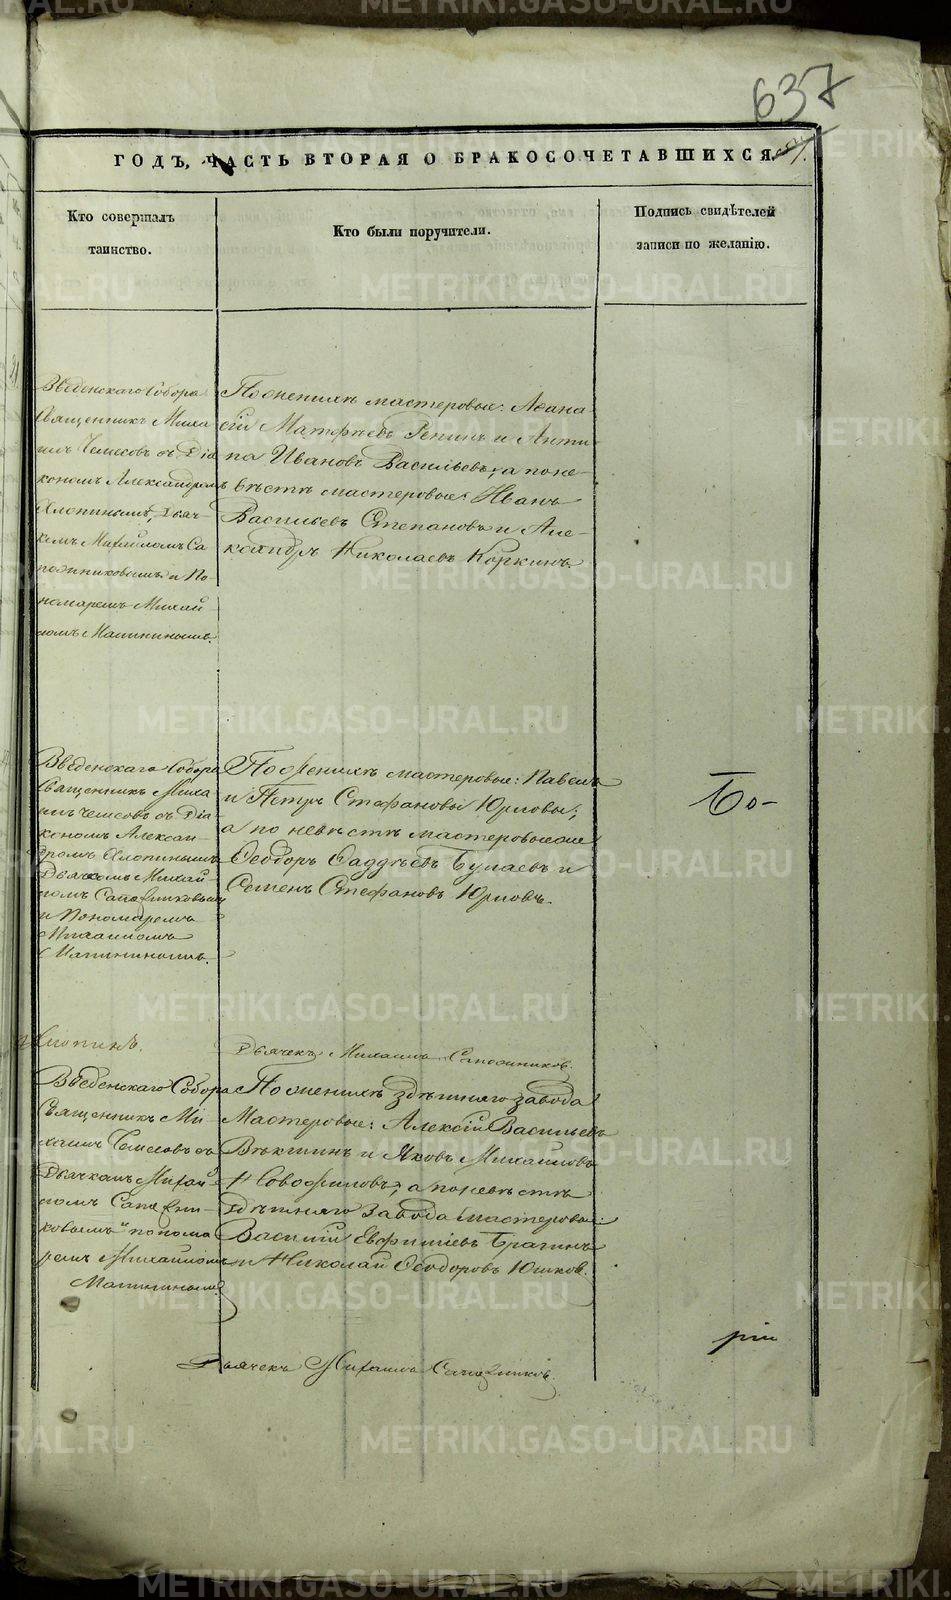 637
ГОДЪ, ЧАСТЬ ВТОРАЯ О БРАКОСОЧЕТАВШИХСЯ.
Кто совершалъ
таинство.
Кто были поручители.
Подпись свидѣтелей
записи по желанію.
Введенскаго Собора
Священникъ Миха
илъ Чемесовъ съ Діа
кономъ Александромъ
Хлопинымъ, Дьяч-
комъ Михайломъ Са
пожниковымъ и По-
номаремъ Михай
ломъ Малининымъ.
По женихѣ мастеровые: Афана
сій Матфѣевъ Репинъ и Анти
па Ивановъ Васильевъ, а по не-
вѣстѣ мастеровые: Иванъ
Васильевъ Степановъ и Але-
ксандръ Николаевъ Коркинъ.
Введенскаго Собора
Священникъ Миха
илъ Чемесовъ съ Діа
кономъ Алексан
дромъ Хлопинымъ
Дьячкомъ Михай
ломъ Сапожниковымъ
и Пономаремъ
Михаиломъ
Малининымъ.
По женихѣ мастеровые: Павелъ
и Петръ Стефановы Юрловы;
а по невѣстѣ мастеровые
Ѳеодоръ Фаддѣевъ Булаевъ и
Семенъ Стефановъ Юрловъ.
Бо-
Хлопинъ.
Дьячекъ Михаилъ Сапожниковъ.
Введенскаго Собора
Священникъ Ми-
хаилъ Чемесовъ съ
Дьячкомъ Михай
ломъ Сапожни-
ковымъ и понома
ремъ Михаиломъ
Малининымъ.
По женихѣ здѣшняго завода
Мастеровые: Алексій Васильевъ
Вѣкшинъ и Яковъ Михаиловъ
Новофиловъ, а по невѣстѣ
здѣшняго завода мастеровые:
Василій Евфиміевъ Брагинъ
и Николай Ѳеодоровъ Юшков.
рти
Дьячекъ Михаилъ Сапожников
METRIKI.GASO-URAL.RU